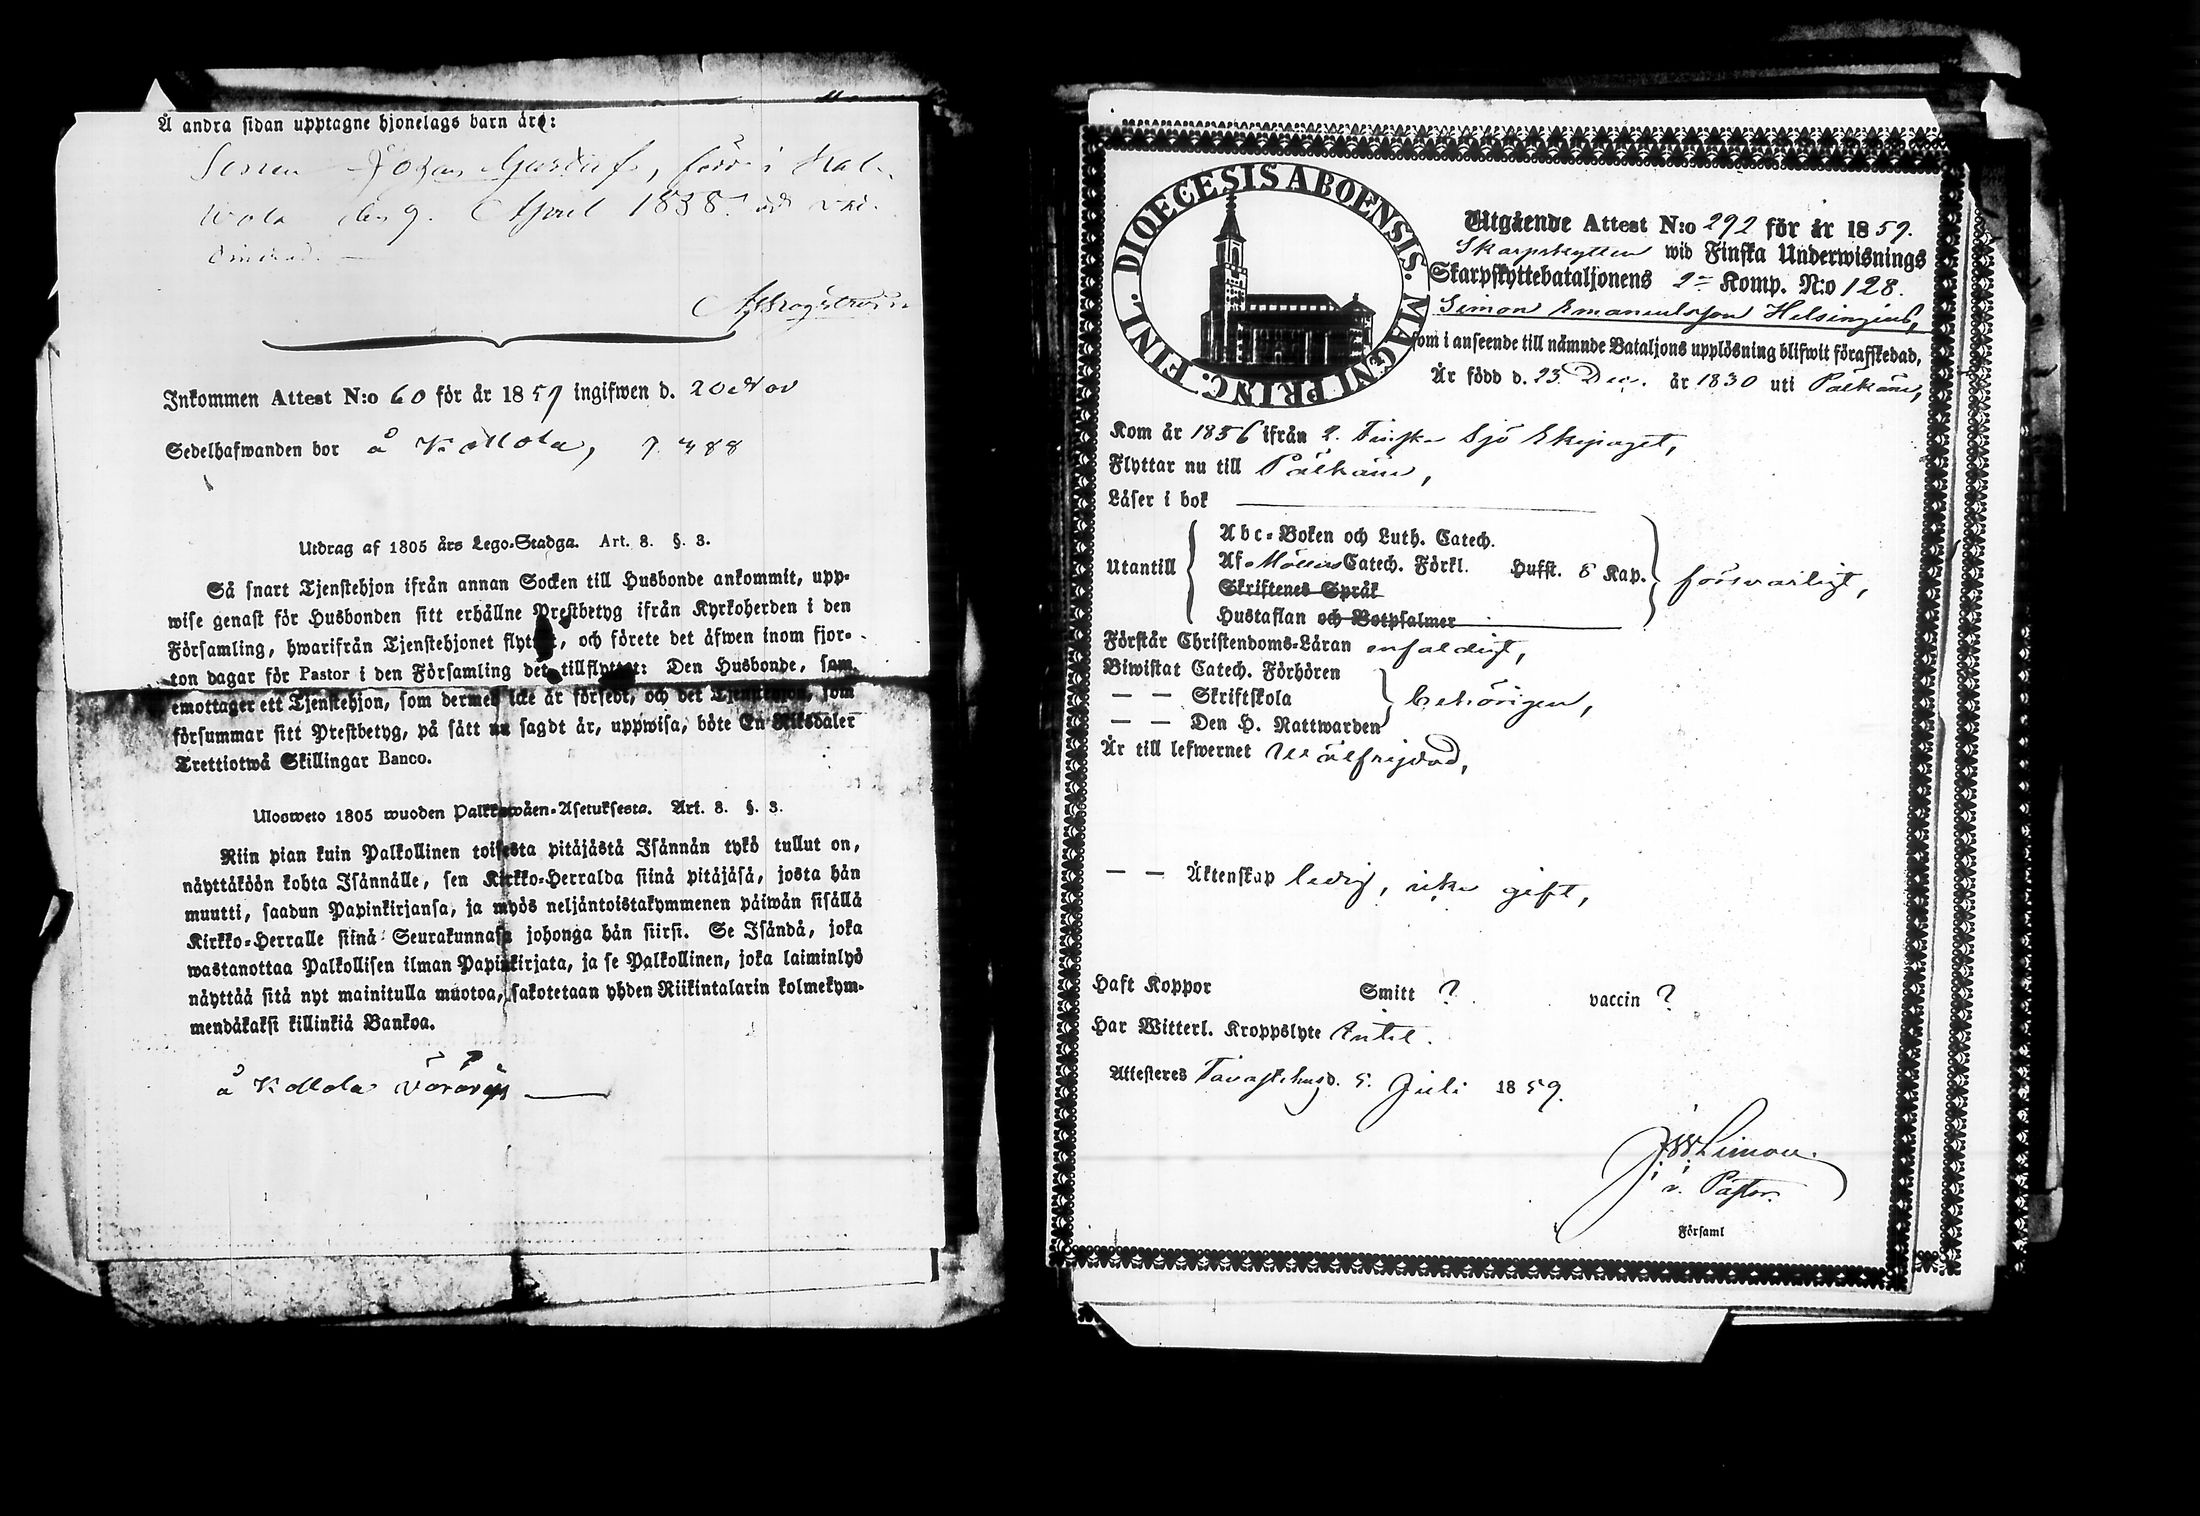 Å andra sidan upptagne hjonelags barn äro:
Sonen Johan Gustaf, född i Kal-
wola den 9. April 1838 och vac-
cinerad. —
Inkommen Attest N:o 60 för år 1859 ingifwen d. 20 Nov
Sedelhafwanden bor å
Utdrag af 1805 års Lego-Stadga. Art. 8. §. 3.
Så snart Tjenstehjon ifrån annan Socken till Husbonde ankommit, upp-
wise genast för Husbonden sitt erhållne Prestbetyg ifrån Kyrkoherden i den
Församling, hwarifrån Tjenstehjonet flyttat, och förete det äfwen inom fjor-
ton dagar för Pastor i den Församling det tillflyttat: Den Husbonde, som
emottager ett Tjenstehjon, som dermed icke är försedt, och det Tjenstehjon, som
försummar sitt Prestbetyg, på sätt nu sagdt är, uppwisa, böte En Riksdaler
Trettiotwå Skillingar Banco.
Ulosweto 1805 wuoden Palkkawäen-Asetuksesta. Art. 8. §. 3.
Niin pian kuin Palkollinen toisesta pitäjästä Isännän tykö tullut on,
näyttäköön kohta Isännälle, sen Kirkko-Herralda siinä pitäjäsä, josta hän
muutti, saadun Papinkirjansa, ja myös neljäntoistakymmenen päiwän sisällä
Kirkko-Herralle siinä Seurakunnasa johonga hän siirsi. Se Isändä, joka
wastanottaa Palkollisen ilman Papinkirjata, ja se Palkollinen, joka laiminlyö
näyttää sitä nyt mainitulla muotoa, sakotetaan yhden Riikintalarin kolmekym-
mendäkaksi killinkiä Bankoa.
FINL. DIOECESIS ABOENSIS. MAGNI PRINC.
Utgående Attest N:o 292 för år 1859.
Skarpskytten wid Finska Underwisnings
Skarpskyttebataljonens 2:a Komp. N:o 128.
Simon Emanuelsson Helsingius,
som i anseende till nämnde Bataljons upplösning blifwit förafskedad,
Är född d. 23 Dec. år 1830 uti Pälkäne,
Kom år 1856 ifrån 2. Finska Sjö Ekipaget,
Flyttar nu till Pälkäne,
Läser i bok
Utantill
Abc-Boken och Luth. Catech.
Af Möllers Catech. Förkl. Hufst. 8 Kap.
Skriftenes Språk
Hustaflan och Botpsalmer
försvarligt,
Förstår Christendoms-Läran enfaldigt,
Biwistat Catech. Förhören
— — Skriftskola
— — Den H. Nattwarden
behörigen,
Är till lefwernet wälfrejdad,
— — Äktenskap ledig, icke gift,
Haft Koppor Smitt ? vaccin ?
Har Witterl. Kroppslyte Intet.
Attesteres Tavastehus d. 5. Juli 1859.
v. Pastor.
Församl